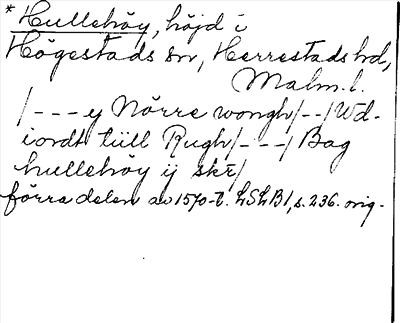 *Hullehöy, höjd i
Högestads sn, Herrestads hd,
Malm.l.
/---y Nörre wongh/--/Ud-
iordt tiill Rugh/---/Bag
hullehöy ij skr/
förra delen av 1570-t. LSLB1, s. 236. orig-